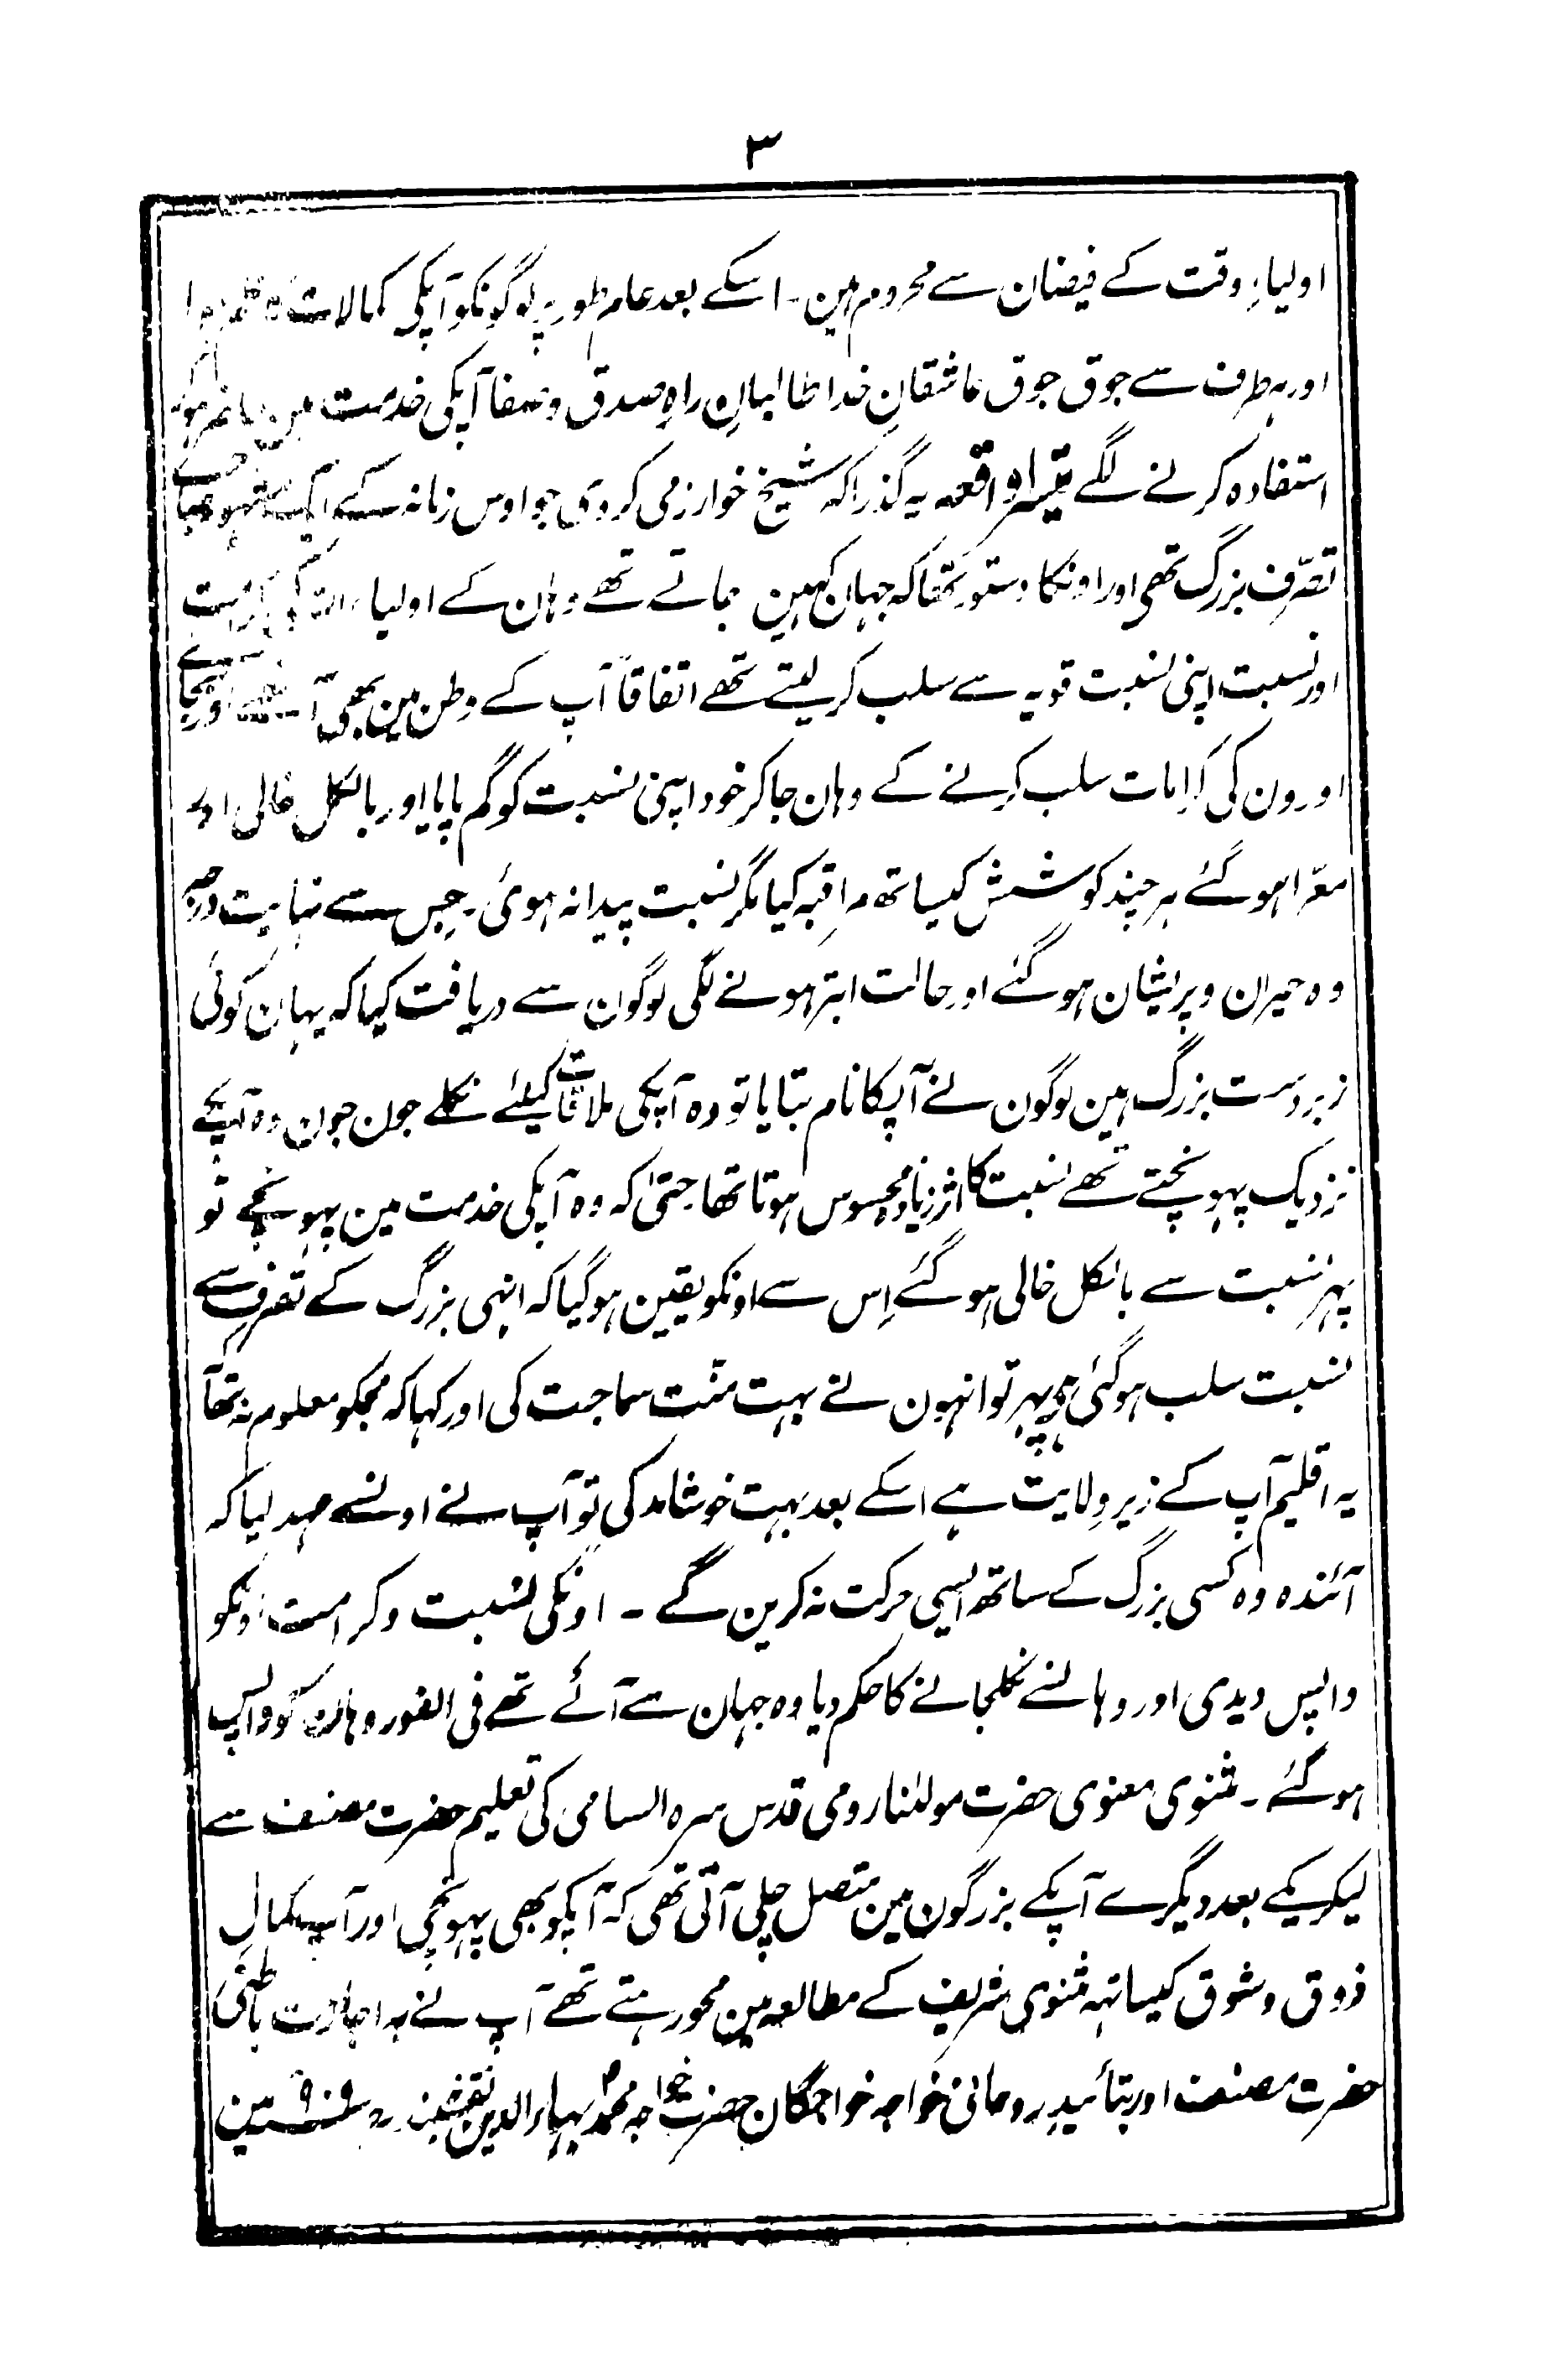 ۳
اولیاءِ وقت کے فیضان سے محروم ہین۔ اسکے بعد عام طور پر لوگونکو آپکی کمالات کا
اور ہر طرف سے جوق جوق عاشقانِ خدا طالبانِ راہِ صدق و صفا آپکی خدمت مین حاضر ہو
استفادہ کرنے لگے تیسرا واقعہ یہ گذرا کہ شیخ خوارزمی کردی جو اوس زمانہ کے ایک مشہور صاحب
تصرّف بزرگ تھی اور اونکا دستور تھا کہ جہان کہین جاتے تھے وہان کے اولیاء اللہ کی کرامت
اور نسبت اپنی نسبت قویہ سے سلب کر لیتے تھے اتفاقاً آپ کے وطن مین بھی آئے اور بجائے
اورون کی کرامات سلب کرنے کے وہان جا کر خود اپنی نسبت کو گم پایا اور بالکل خالی اور
معرّا ہو گئے ہر چند کوشش کیساتھ مراقبہ کیا مگر نسبت پیدا نہ ہوئی۔ جس سے نہایت درجہ
وہ حیران و پریشان ہو گئے اور حالت ابتر ہونے لگی لوگون سے دریافت کیا کہ یہان کوئی
زبردست بزرگ ہین لوگون نے آپکا نام بتایا تو وہ آپکی ملاقات کیلئے نکلے جون جون وہ آپکے
نزدیک پہونچتے تھے نسبت کا اثر زیادہ محسوس ہوتا تھا حتیٰ کہ وہ آپکی خدمت مین پہونچے تو
پہر نسبت سے بالکل خالی ہو گئے اِس سے اونکو یقین ہو گیا کہ انہی بزرگ کے تصرف سے
نسبت سلب ہو گئی ہے پہر تو انہون نے بہت منّت سماجت کی اور کہا کہ مجکو معلوم نہ تھا
یہ اقلیم آپ کے زیر ولایت ہے اسکے بعد بہت خوشامد کی تو آپ نے اونسے عہد لیا کہ
آئندہ وہ کسی بزرگ کے ساتھ ایسی حرکت نہ کرین گے ۔ اونکی نسبت و کرامت اونکو
واپس دیدی اور وہانسے نکلجانے کا حکم دیا وہ جہان سے آئے تھے فی الفور وہان کو واپس
ہو گئے ۔ مثنوی معنوی حضرت مولٰنا رومی قدس سرہ السامی کی تعلیم حضرت مصنف سے
لیکر یکے بعد دیگرے آپکے بزرگون مین متصل چلی آتی تھی کہ آپکو بھی پہونچی اور آپ بکمالِ
ذوق و شوق کیساتہہ مثنوی شریف کے مطالعہ مین محو رہتے تھے آپ نے بہ اجازت باطنی
حضرت مصنف اور بتائید روحانی خواجہ خواجگان حضرت خواجہ محمد بہاءالدین نقشبند ۹۰۹ مین